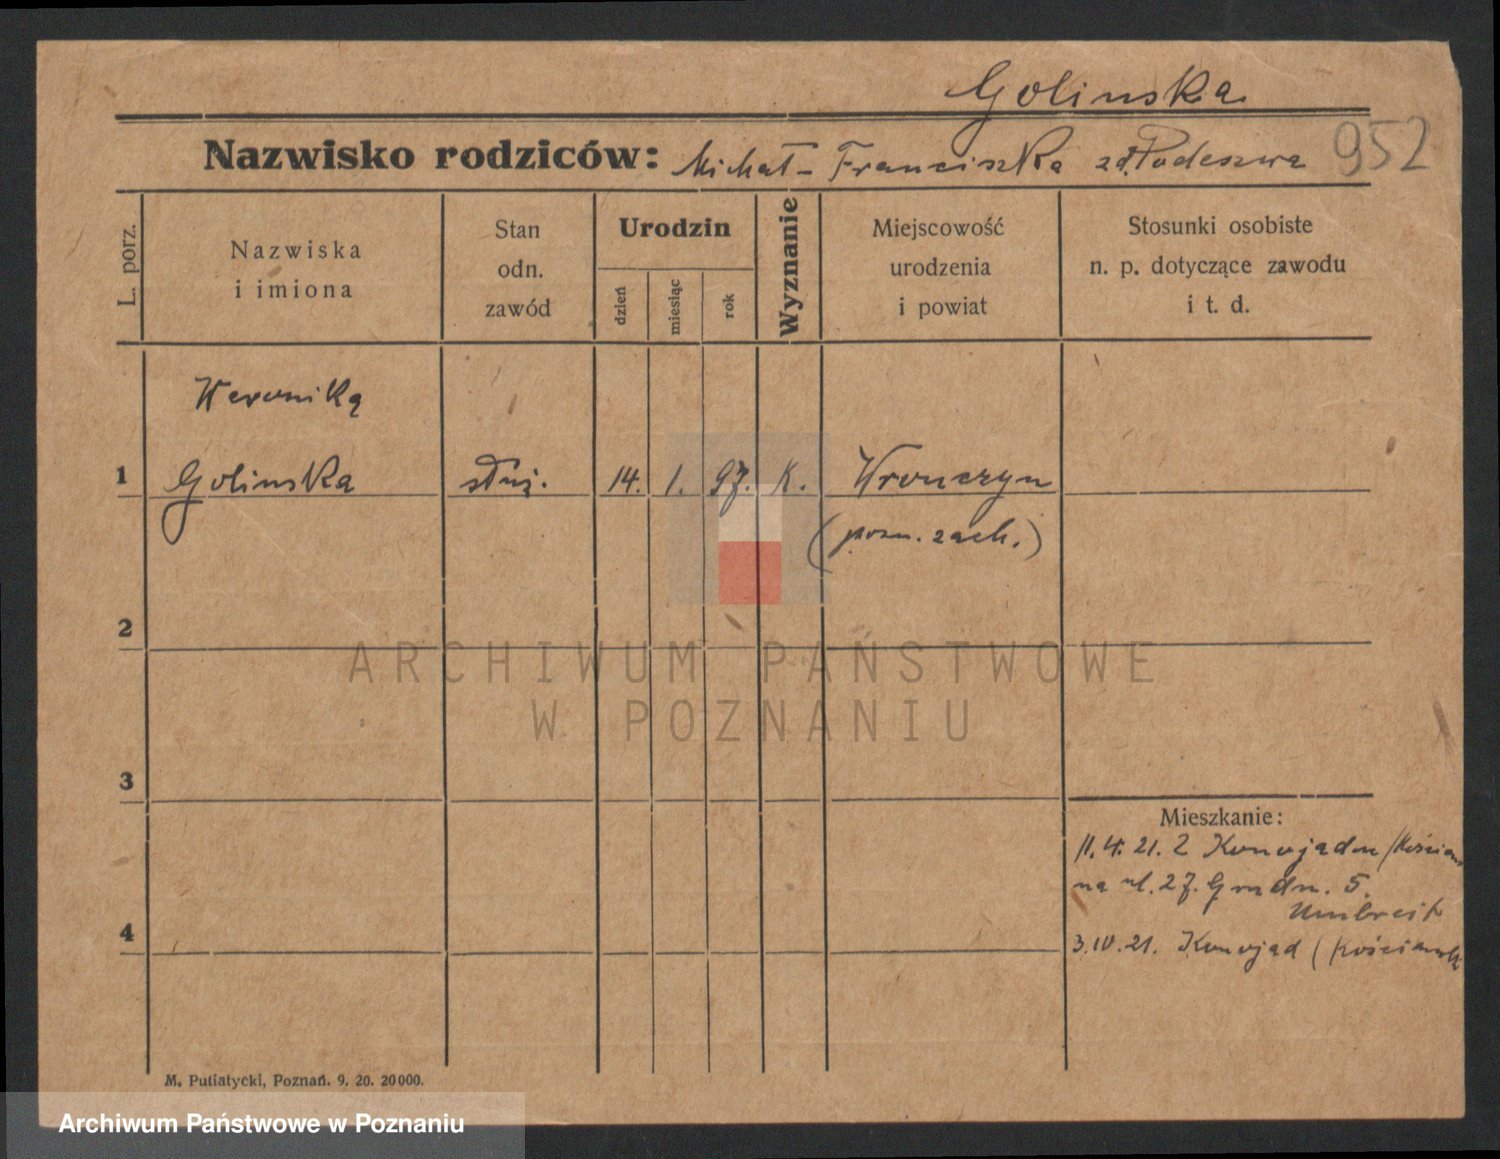 Golinska
952
Nazwisko rodziców: Michał - Franciszka zd. Podeszwa
L. porz.
Nazwiska
i imiona
Stan
odn.
zawód
Urodzin
dzień
miesiąc
rok
Wyznanie
Miejscowość
urodzenia
i powiat
Stosunki osobiste
n. p. dotyczące zawodu
i t. d.
Weronika
1 Golinska służ. 14. 1. 97. K. Wronczyn
(pozn. zach.)
2
ARCHIWUM PAŃSTWOWE
W POZNANIU
3
Mieszkanie:
11.4.21. Z Konojadu /Kościan
na ul. 27. Grudn. 5.
Umbreit
4
3.IV.21. Konojad (Kościan
M. Putiatycki, Poznań. 9. 20. 20000.
Archiwum Państwowe w Poznaniu